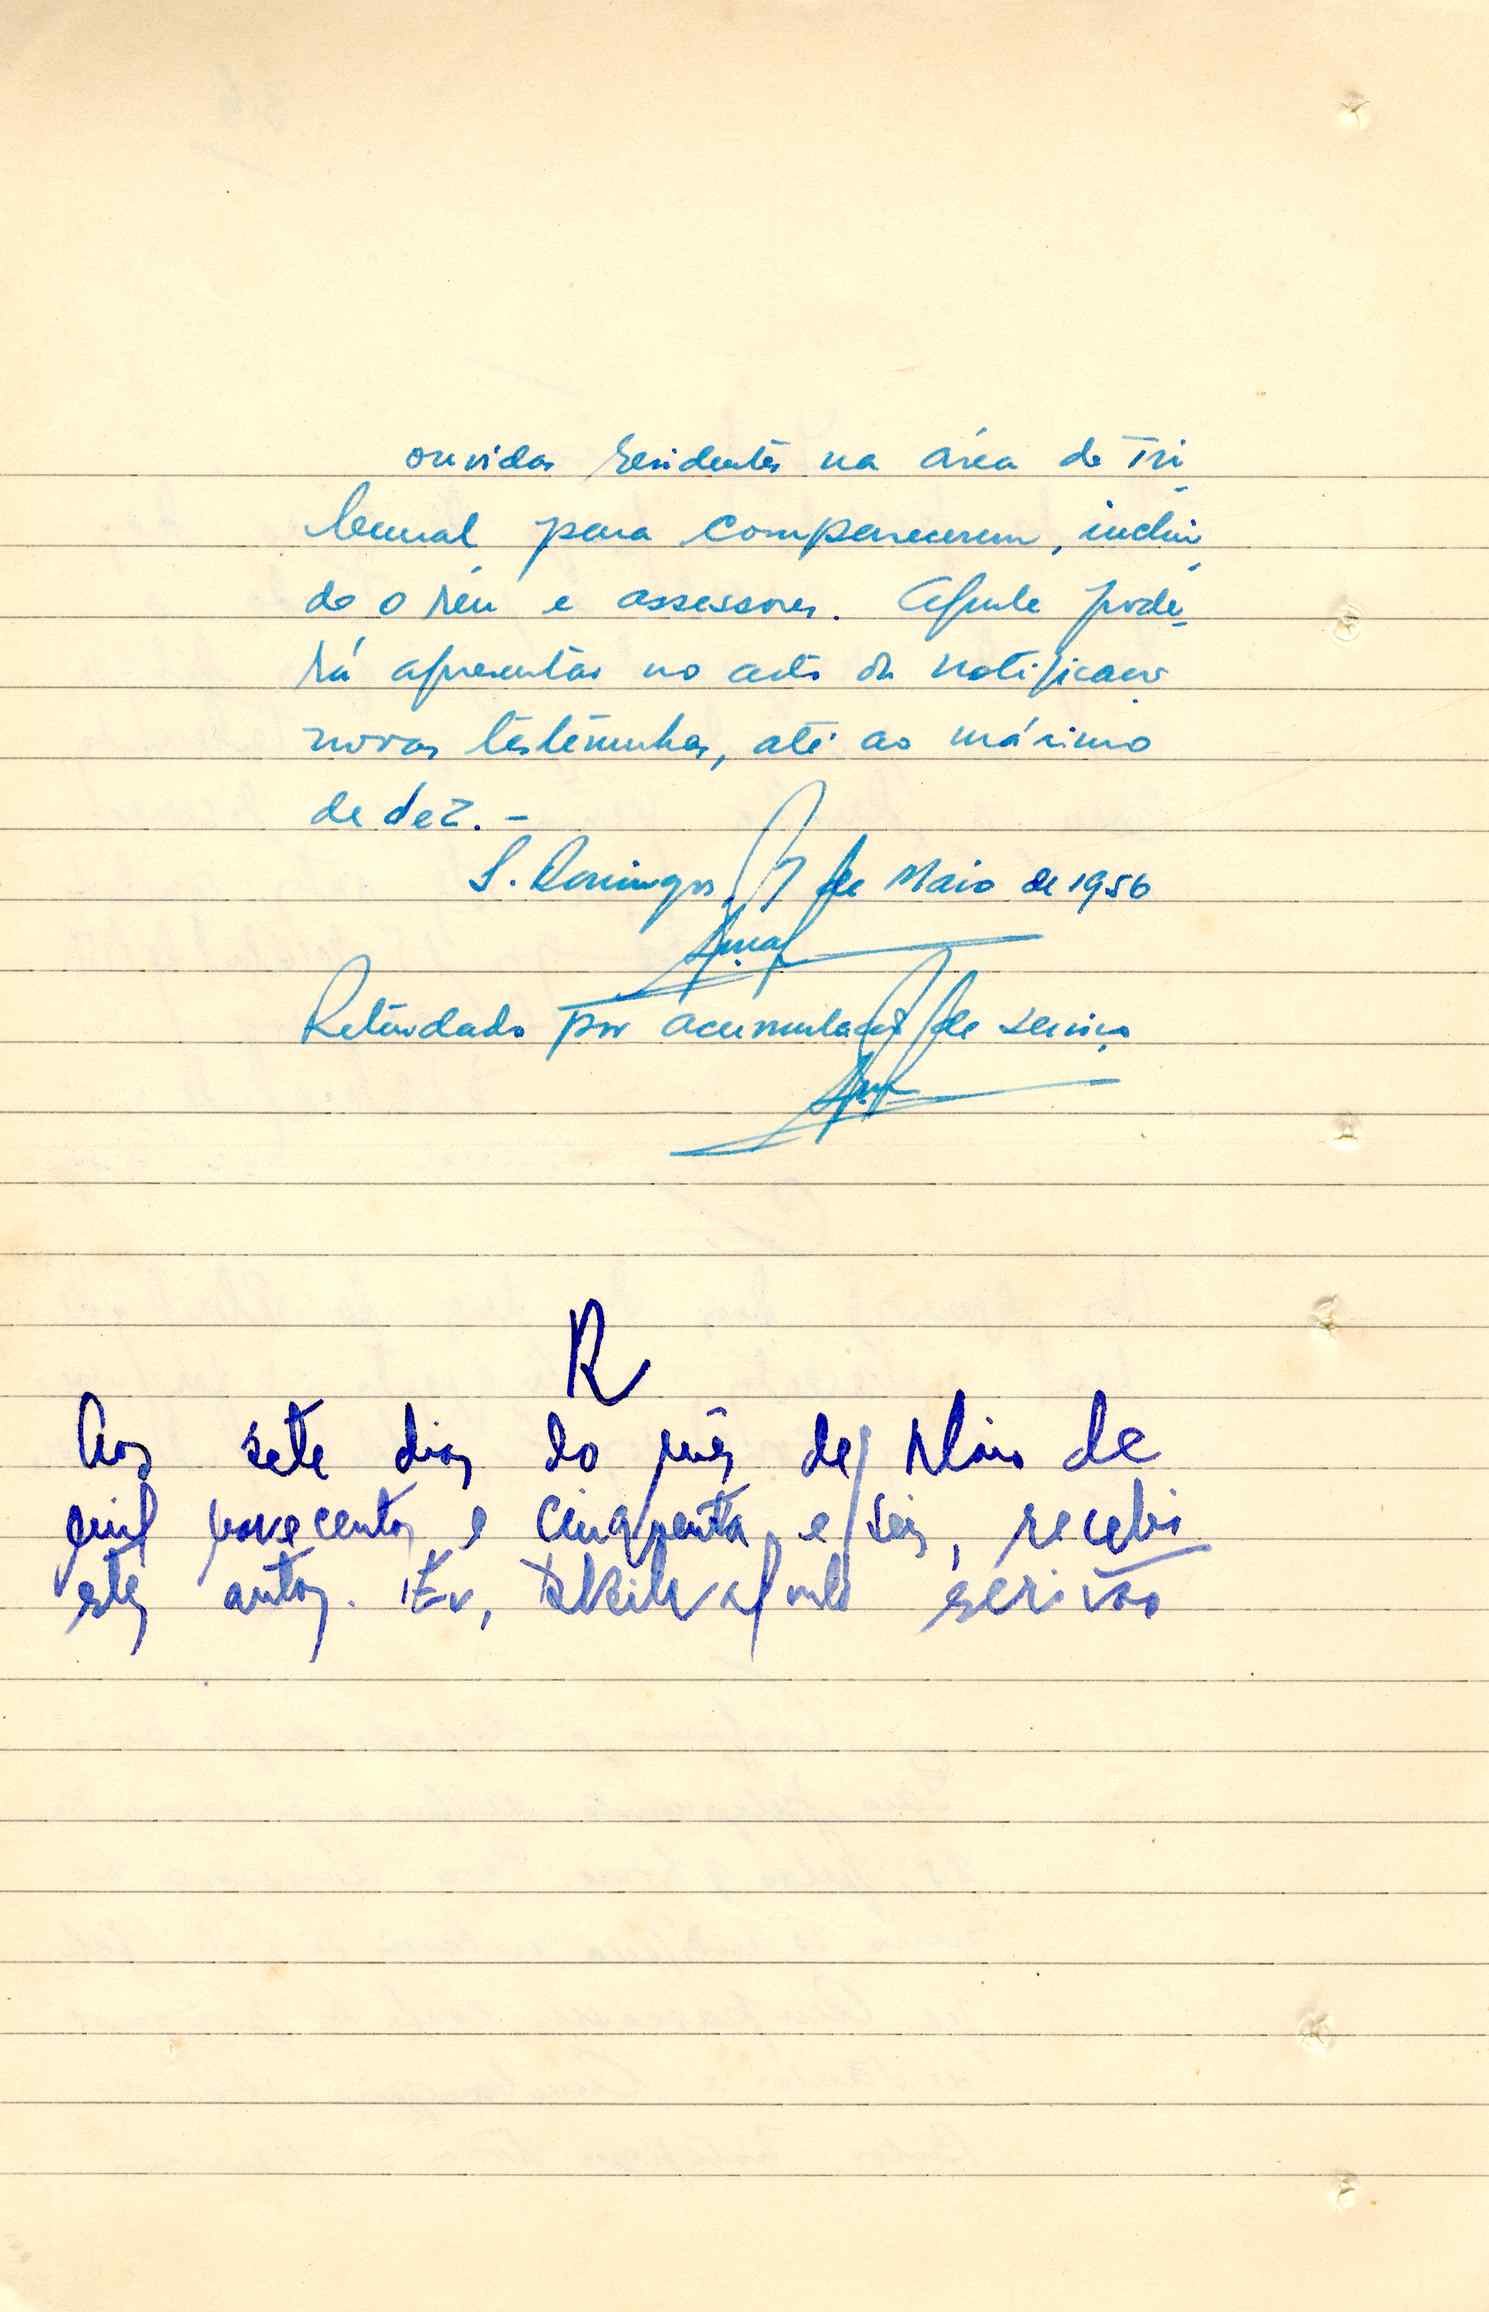 ouvidas residentes na área do Tri-
bunal para comparecerem, incluin-
do o réu e assessores. Aquele pode-
rá apresentar no acto da notificação
novas testemunhas, até ao máximo
de dez. -
S. Domingos, 7 de Maio de 1956
Retardado por acumulação de serviço
R
Aos sete dias do mês de Maio de
mil novecentos e cinquenta e seis, recebi
estes autos. Eu, escrivão